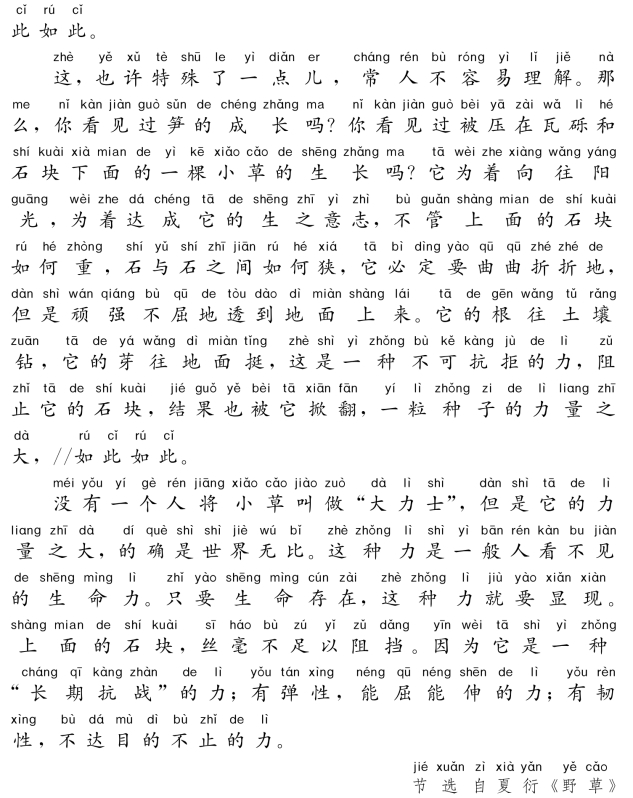 cǐ rú cǐ
此如此。
zhè yě xǔ tè shū le yì diǎn er cháng rén bù róng yì lǐ jiě nà
这，也许特殊了一点儿，常人不容易理解。那
me nǐ kàn jiàn guò sǔn de chéng zhǎng ma nǐ kàn jiàn guò bèi yā zài wǎ lì hé
么，你看见过笋的成长吗？你看见过被压在瓦砾和
shí kuài xià mian de yì kē xiǎo cǎo de shēng zhǎng ma tā wèi zhe xiàng wǎng yáng
石块下面的一棵小草的生长吗？它为着向往阳
guāng wèi zhe dá chéng tā de shēng zhī yì zhì bù guǎn shàng mian de shí kuài
光，为着达成它的生之意志，不管上面的石块
rú hé zhòng shí yǔ shí zhī jiān rú hé xiá tā bì dìng yào qū qū zhé zhé de
如何重，石与石之间如何狭，它必定要曲曲折折地，
dàn shì wán qiáng bù qū de tòu dào dì miàn shàng lái tā de gēn wǎng tǔ rǎng
但是顽强不屈地透到地面上来。它的根往土壤
zuān tā de yá wǎng dì miàn tǐng zhè shì yì zhǒng bù kě kàng jù de lì zǔ
钻，它的芽往地面挺，这是一种不可抗拒的力，阻
zhǐ tā de shí kuài jié guǒ yě bèi tā xiān fān yí lì zhǒng zi de lì liang zhī
止它的石块，结果也被它掀翻，一粒种子的力量之
dà rú cǐ rú cǐ
大，//如此如此。
méi yǒu yí gè rén jiāng xiǎo cǎo jiào zuò dà lì shì dàn shì tā de lì
没有一个人将小草叫做“大力士”，但是它的力
liang zhī dà dí què shì shì jiè wú bǐ zhè zhǒng lì shì yì bān rén kàn bu jiàn
量之大，的确是世界无比。这种力是一般人看不见
de shēng mìng lì zhǐ yào shēng mìng cún zài zhè zhǒng lì jiù yào xiǎn xiàn
的生命力。只要生命存在，这种力就要显现。
shàng mian de shí kuài sī háo bù zú yǐ zǔ dǎng yīn wèi tā shì yì zhǒng
上面的石块，丝毫不足以阻挡。因为它是一种
cháng qī kàng zhàn de lì yǒu tán xìng néng qū néng shēn de lì yǒu rèn
“长期抗战”的力；有弹性，能屈能伸的力；有韧
xìng bù dá mù dì bù zhǐ de lì
性，不达目的不止的力。
jié xuǎn zì xià yǎn yě cǎo
节选自夏衍《野草》